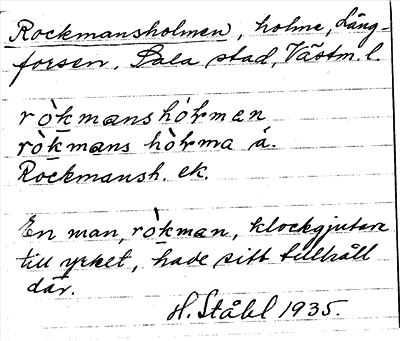 Rockmansholmen, holme, Lång-
forsen, Sala stad, Västm. l.
ròkmanshòlman
ròkmans hòlma á.
Rockmansh. ek.
En man, ròkman, klockgjutare
till yrket, hade sitt tillhåll
där.
H. Ståhl 1935.